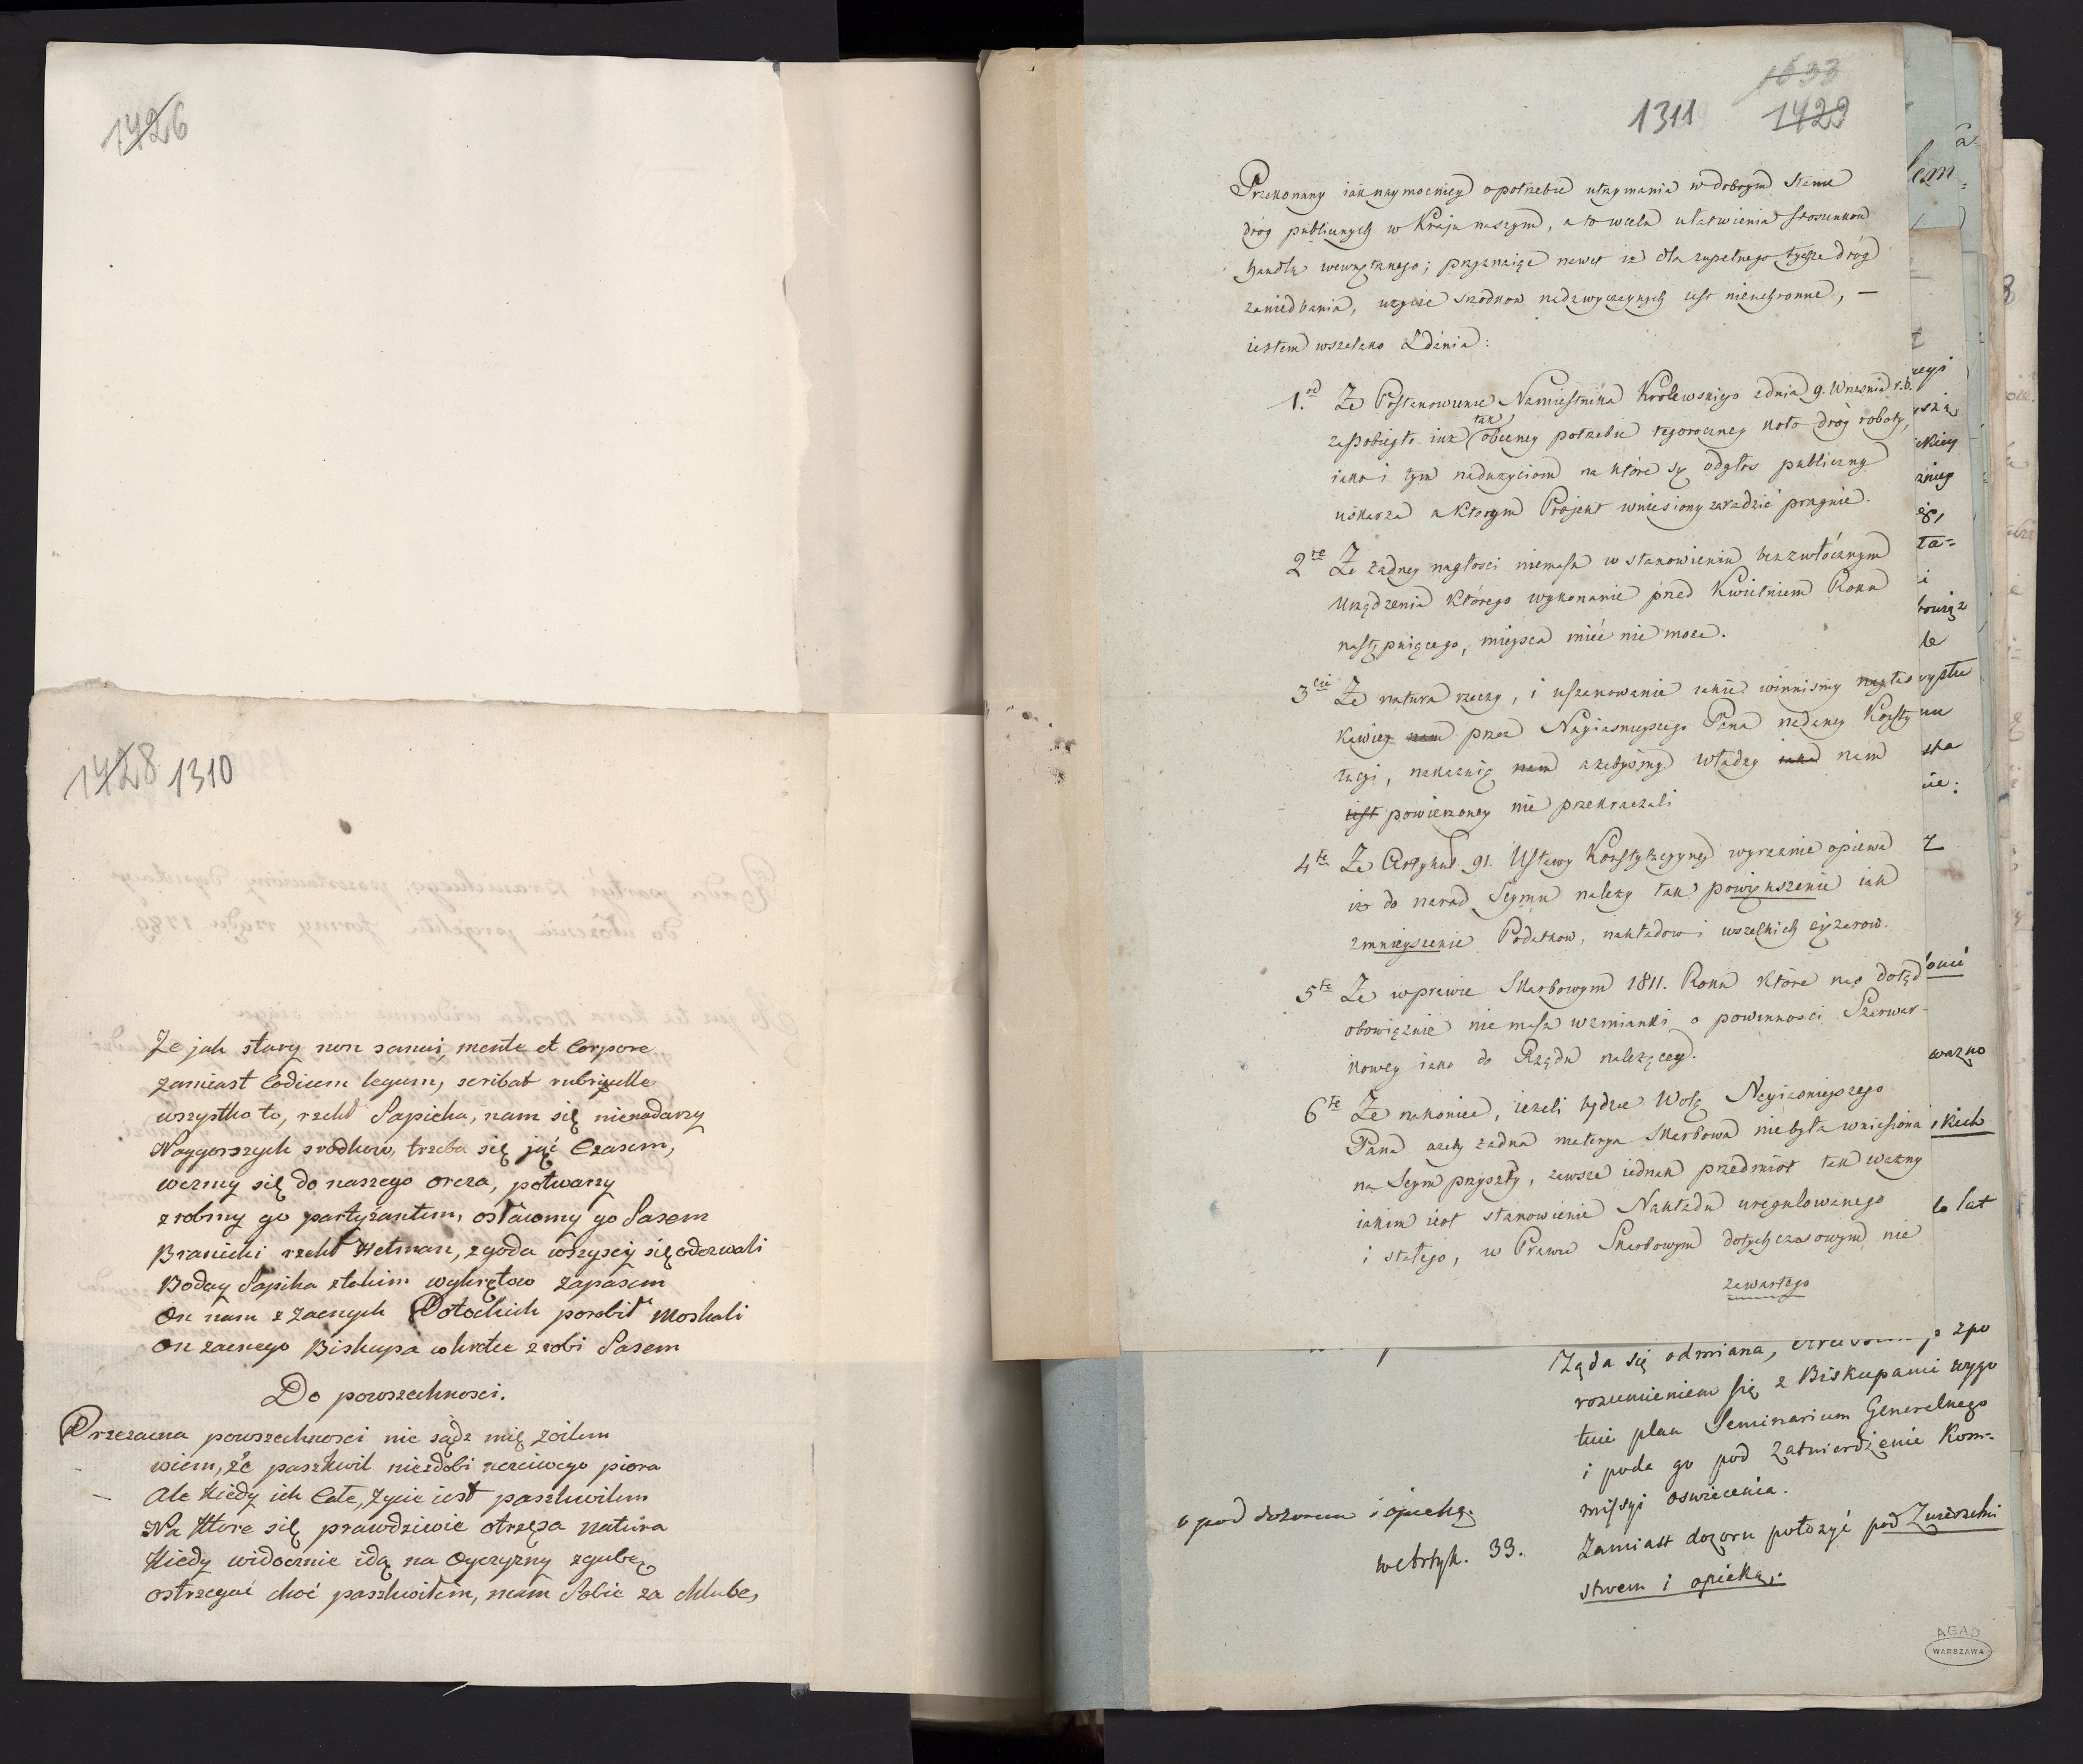 1426
1428 1310
Że jak stary non sanus, mente et Corpore
zamiast Codicem legum, scribat rubryellę
wszystko to, rzekł Sapieha, nam się nienadarzy
Naygorszych srodkow, trzeba się jąć Czasem,
wezmy się do naszego oręza, potwarzy
zrobmy go partyzantem, osławmy go Sasem
Branicki rzekł Hetman, zgoda wszyscy się odezwali
Boday Sapiha ztakim wykrętow zapasem
On nam z zacnych Potockich porobił Moskali
On zacnego Biskupa wkrotce zrobi Sasem
Do powszechnosci.
Przezacna powszechnosci nie sądz mię zoilem
wiem, że paszkwil niezdobi uczciwego piora
Ale kiedy ich Całe, życie iest paszkwilem
Na ktore się prawdziwie otrzęsa natura
Kiedy widocznie idą na Oyczyzny zgubę
ostrzegać choć paszkwilem, mam Sobie za chlubę,
1633
1311 1429
Przekonany iak naymocniey o potrzebie utrzymania w dobrym stanie
dróg publicznych w Kraju naszym, a to w celu ułatwienia stosunkow
handlu wewnętrznego; przyznaiąc nawet iż dla zupełnego tychże dróg
zaniedbania, użycie srzodkow nadzwyczaynych iest nieuchronne, —
iestem wszelako Zdania:
1.od Że Postanowienie Namiestnika Krolewskiego z dnia 9. Wrzesnia r.b.
zapobiegło iuż tak obecney potrzebie tegoroczney koło dróg roboty,
iako i tym nadużyciom na które się odgłos publiczny
uskarza a ktorym Projekt wniesiony zaradzić pragnie.
2re Że żadney nagłosci niemasz w stanowieniu bezzwłócznym
Urządzenia którego wykonanie przed Kwietniem Roku
następuiącego, mieysca mieć nie może.
3cie Że natura rzeczy, i uszanowanie iakie winnismy nayłas
kawiey nam przez Nayiasnieyszego Pana nadaney Konsty
tucyi, nakazuię nam ażebyśmy władzy iaka nam
iest powierzoney nie przekraczali
4te Że Artykuł 91. Ustawy Konstytucyyney wyraznie opiewa
iż do narad Seymu należy tak powiększenie iak
zmnieyszenie Podatkow, nakładow i wszelkich ciężarow.
5te Że w prawie Skarbowym 1811. Roku które nas dotąd
obowiązuie nie masz wzmianki o powinnosci Szarwar-
kowey iako do Rządu należącey.
6te Że nakoniec, ieżeli będzie Wolą Nayiasnieyszego
Pana ażeby żadna materya Skarbowa nie była wniesiona
na Seym przyszły, zawsze iednak przedmiot tak ważny
iakim iest stanowienie Nakładu uregulowanego
i stałego, w Prawie Skarbowym dotychczasowym nie
zawartego
Ząda się odmiana,
rozumieniem się z Biskupami wygo
tuie plan Seminarium Generalnego
i poda go pod Zatwierdzenie Kom-
missyi oswiecenia.
o pod dozorem i opieką.
w Artyk. 33. Zamiast dozoru położyć pod Zwierzchni
stwem i opieką.
AGAD
WARSZAWA